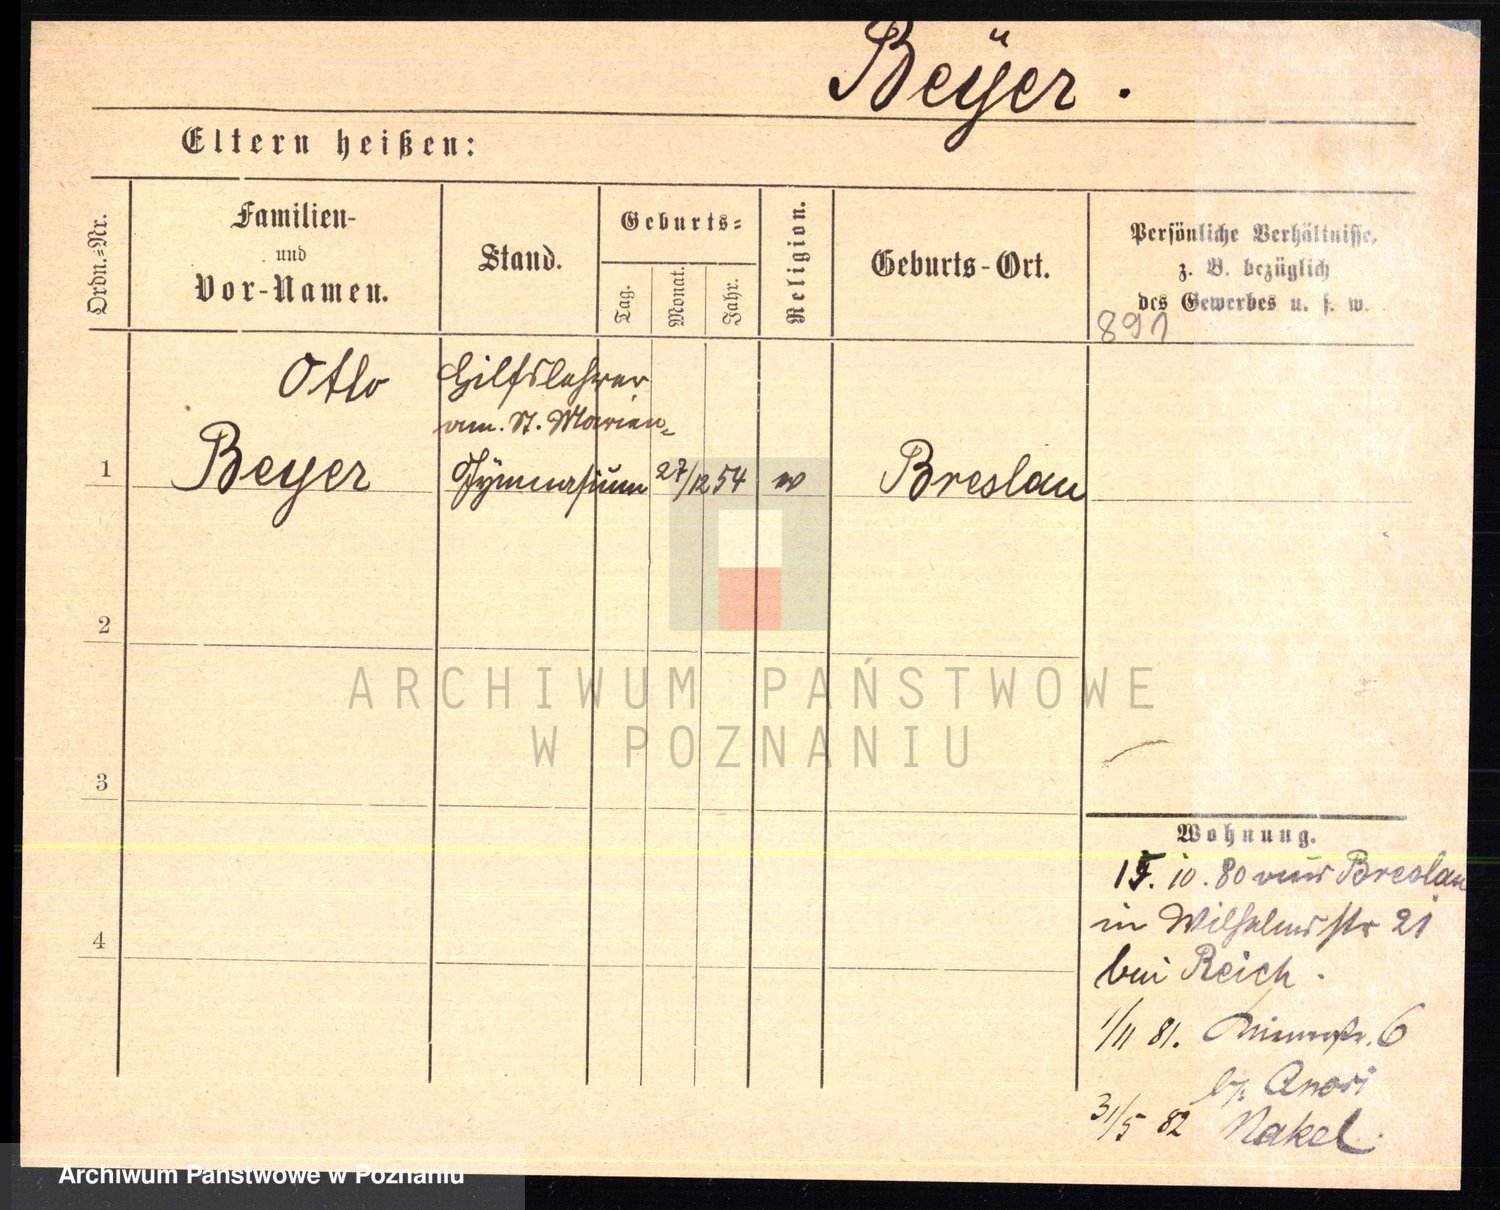 Beÿer.
Eltern heißen:
Ordn.=Nr.
Familien-
und
Vor-Namen.
Stand.
Geburts=
Tag.
Monat.
Jahr.
Religion.
Geburts-Ort.
Persönliche Verhältnisse,
z. B. bezüglich
des Gewerbes u. s. w.
891
Otto
Hilfslehrer
am. St. Marien-
1
Beyer
Gymnasium
27/12 54
Breslau
2
3
4
ARCHIWUM PAŃSTWOWE
W POZNANIU
Wohnung.
15. 10. 80 aus Breslau
in Wilhelmsstr 21
bei Reich.
1/11 81. 6
31/5 82 Nakel.
Archiwum Państwowe w Poznaniu